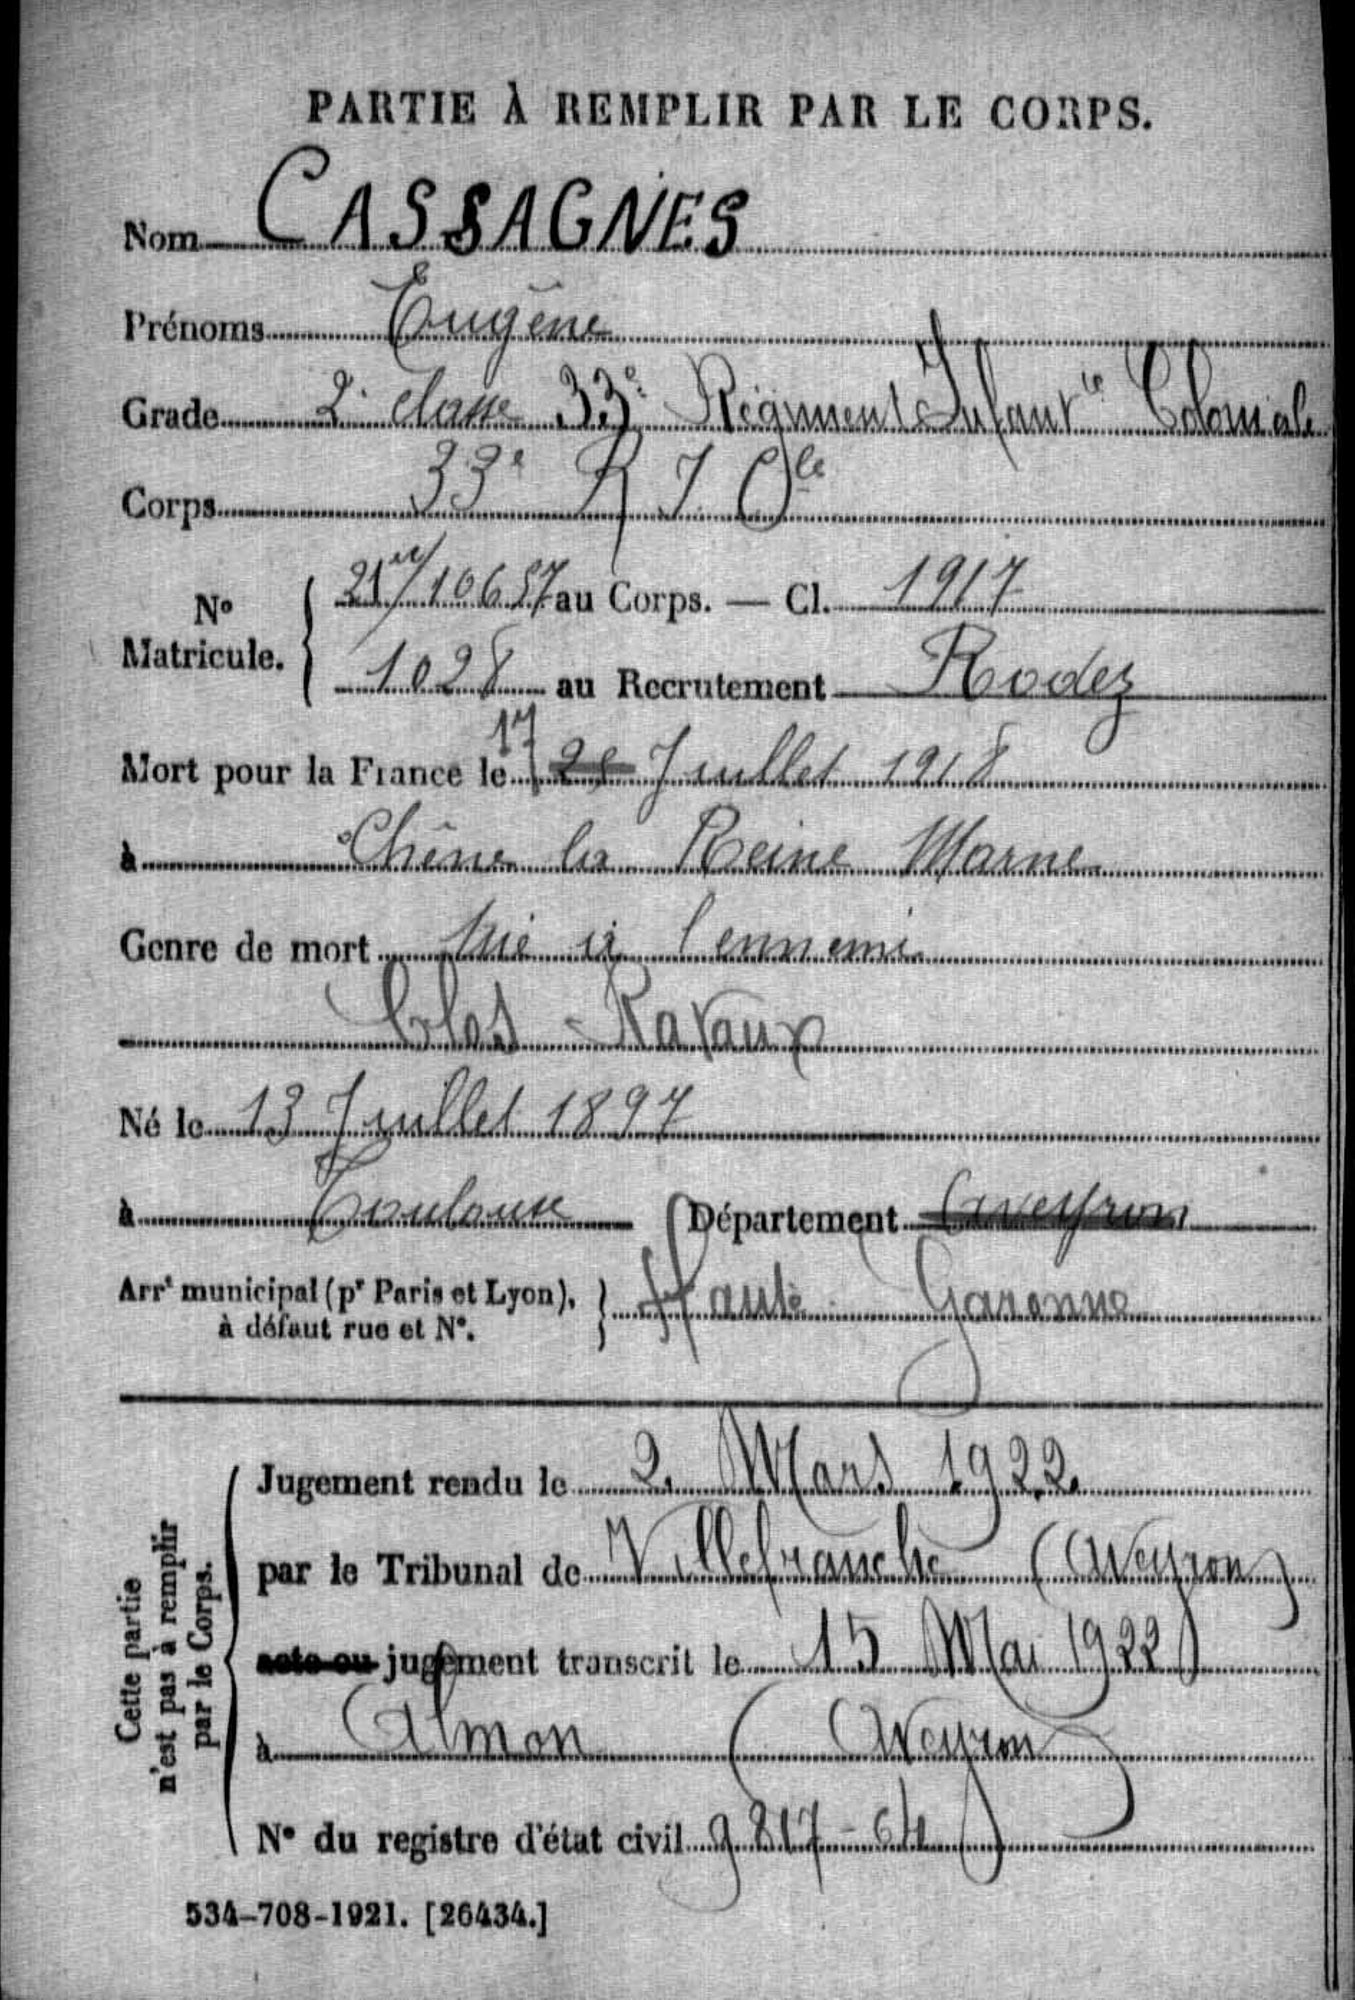 PARTIE À REMPLIR PAR LE CORPS.
Nom CASSAGNES
Prénoms Eugène
Grade 2e classe 33e Régiment Infantie Coloniale
Corps 33e R I Cle
No Matricule. 21e/10657 au Corps. — Cl. 1917
1028 au Recrutement Rodez
Mort pour la France le 17 Juillet 1918
à Chêne la Reine Marne
Genre de mort tué à l'ennemi
Clos - Ravaux
Né le 13 Juillet 1897
à Toulouse Département Aveyron
Arrt municipal (pr Paris et Lyon), Haute Garonne
à défaut rue et No.
Cette partie n'est pas à remplir par le Corps.
Jugement rendu le 2 Mars 1922
par le Tribunal de Villefranche (Aveyron)
acte ou jugement transcrit le 15 Mai 1922
à Almon (Aveyron)
No du registre d'état civil 9817-64
534-708-1921. [26434.]